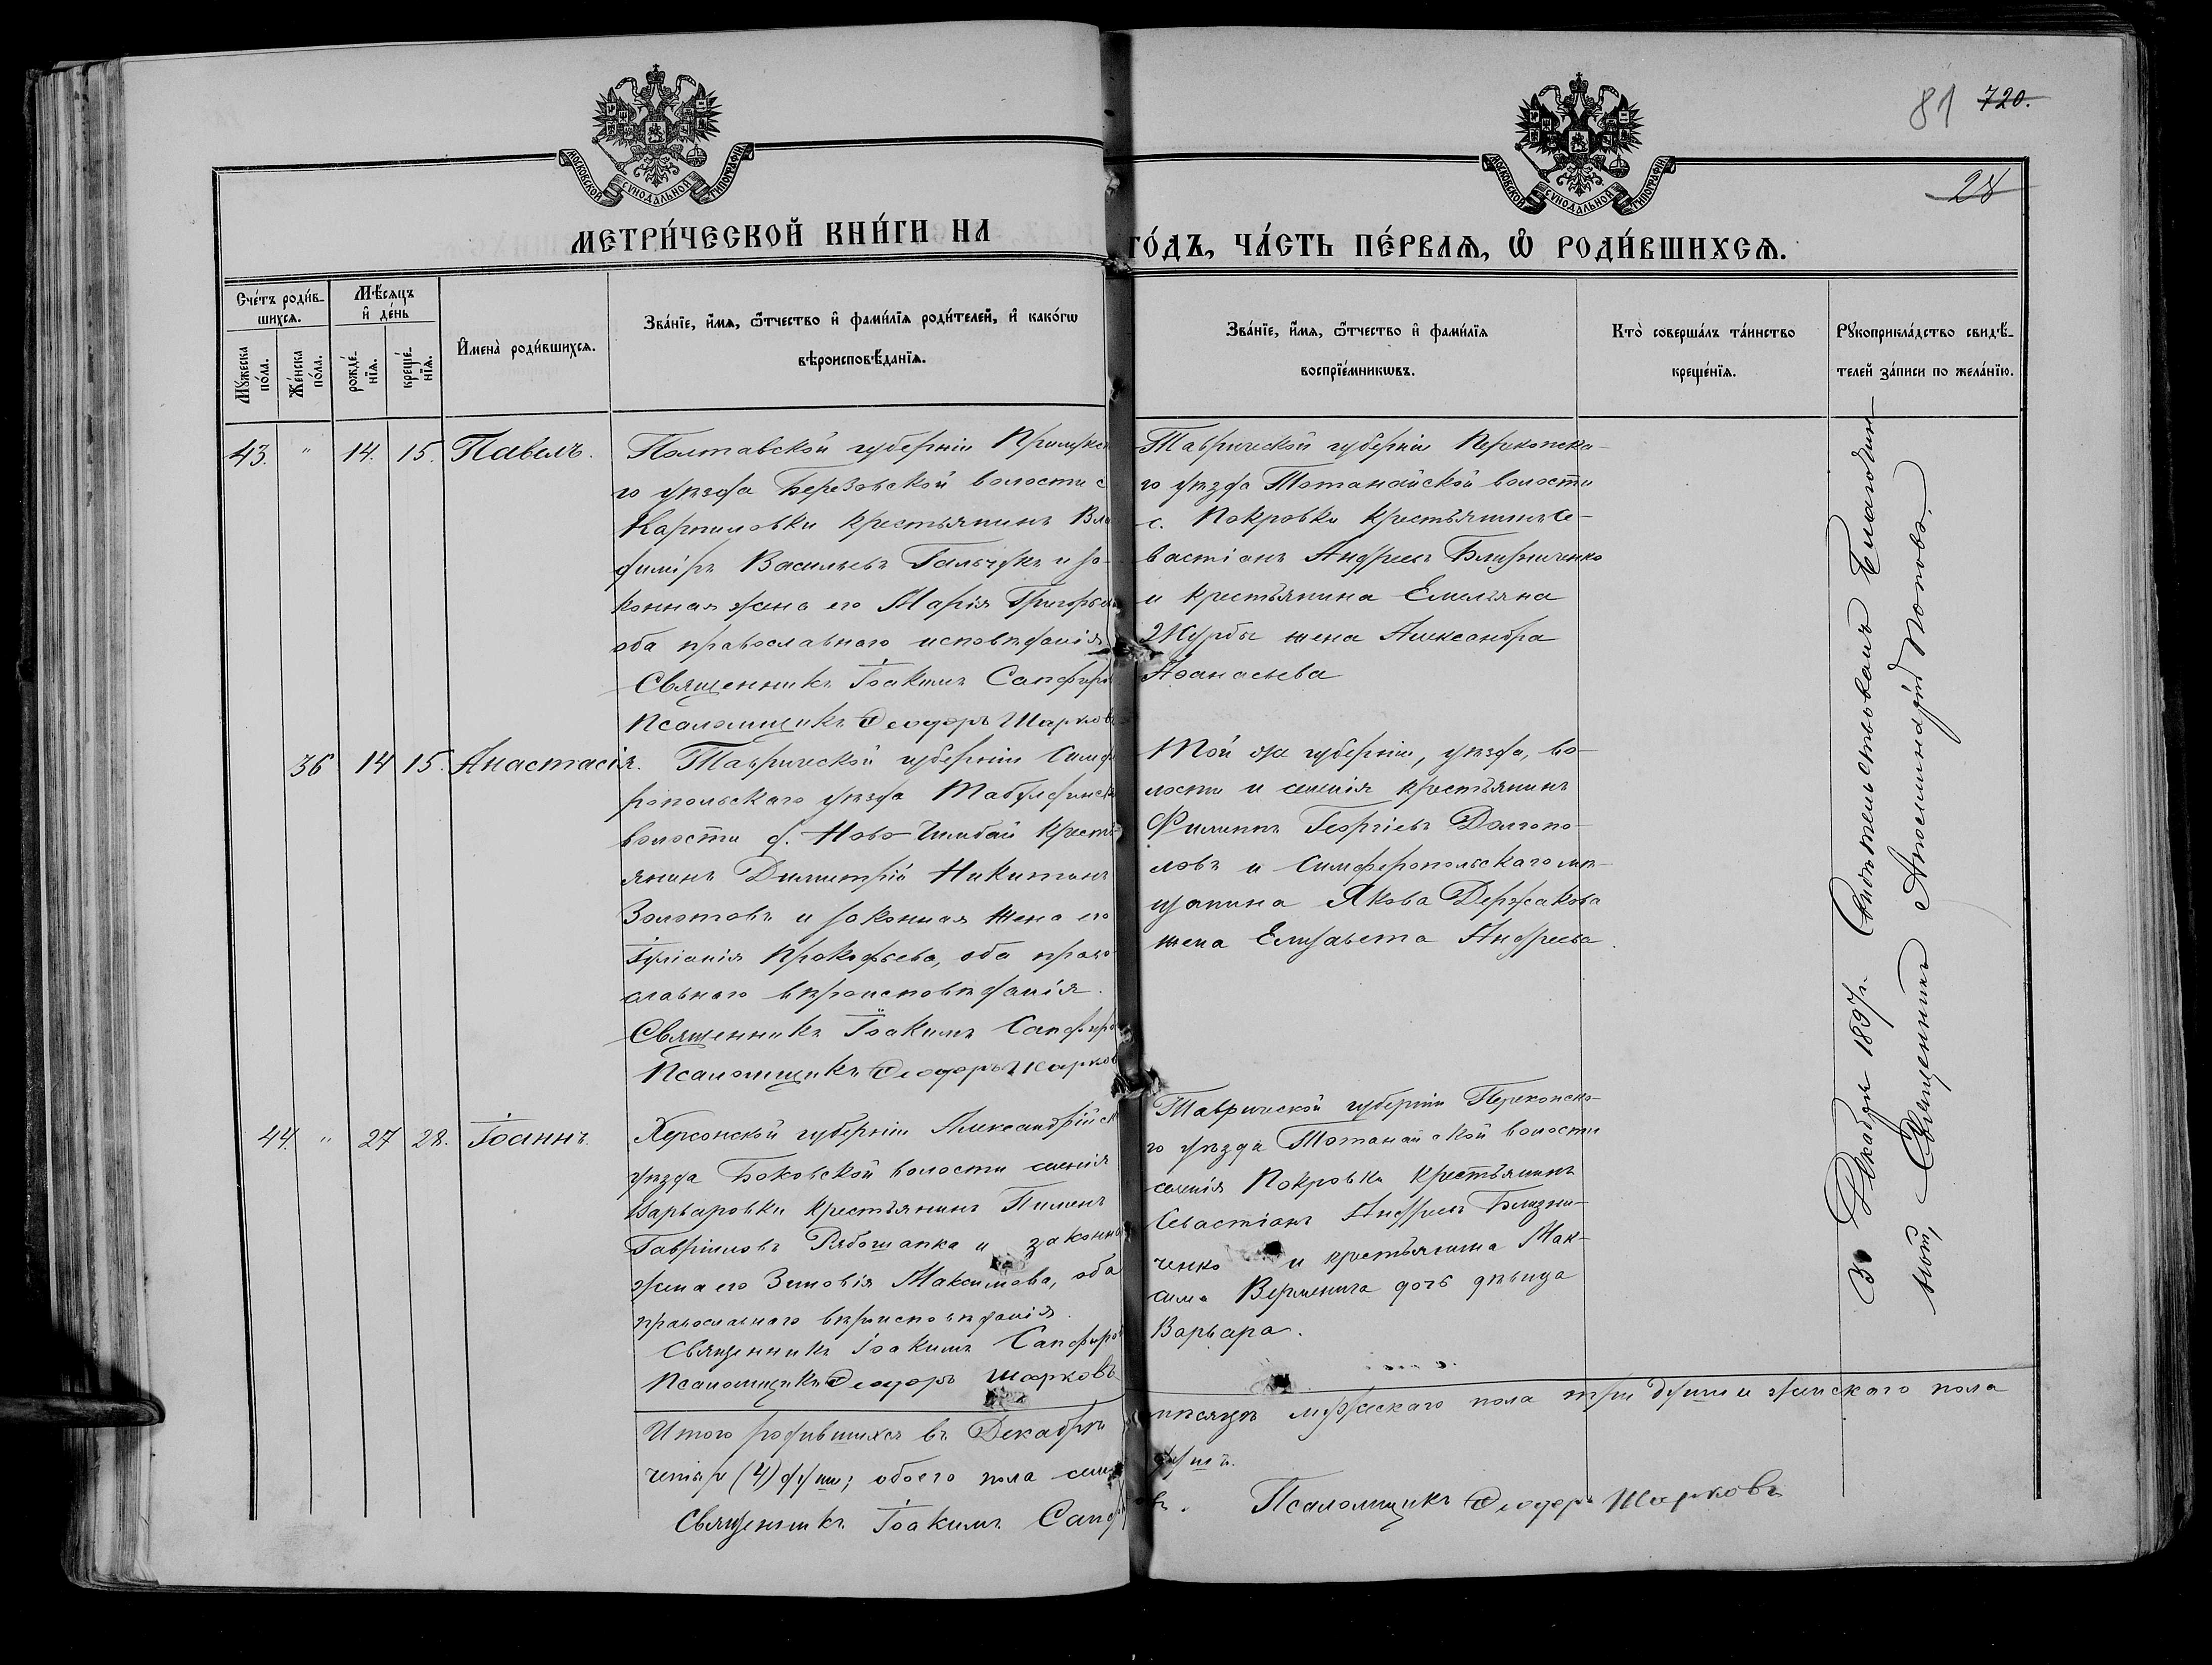 81 720.
28
МОСКОВСКОЙ СѴНОДАЛЬНОЙ ТИПОГРАФІИ
МОСКОВСКОЙ СѴНОДАЛЬНОЙ ТИПОГРАФІИ
МЕТРИ́ЧЕСКОЙ КНИ́ГИ НА
ГО́ДЪ, ЧА́СТЬ ПЕ́РВАѦ, Ѡ҆ РОДИ́ВШИХСѦ.
Сче́тъ роди́в-
шихсѧ.
Мꙋ́жеска
по́ла.
Же́нска
по́ла.
Мѣ́сѧцъ
и҆ де́нь
рожде́-
нїѧ.
креще́-
нїѧ.
И҆мена̀ роди́вшихсѧ.
Зва́нїе, и҆́мѧ, ѻ҆́тчество и҆ фами́лїѧ роди́телей, и҆ како́гѡ
вѣроисповѣ́данїѧ.
Зва́нїе, и҆́мѧ, ѻ҆́тчество и҆ фами́лїѧ
воспрїе́мникѡвъ.
Кто̀ соверша́лъ та́инство
креще́нїѧ.
Рꙋкоприкла́дство свидѣ́-
телей за́писи по жела́нїю.
43. " 14. 15. Павелъ.
Полтавской губерніи Прилукс
го уѣзда Березовской волости с
Карпиловки крестьянинъ Вла
диміръ Васильевъ Гальчукъ и за-
конная жена его Марія Григорьева
оба православнаго исповѣданія
Священникъ Іоакимъ Сапфиро
Псаломщикъ Ѳеодоръ Шарковъ
Таврической губерніи Перекопска-
го уѣзда Тотанайской волости
с. Покровки крестьянинъ Се-
вастіанъ Андреевъ Близниченко
и крестьянина Емельяна
Журбы жена Александра
Аѳанасьева
36 14 15. Анастасія.
Таврической губерніи Симфе
ропольскаго уѣзда Табулдинск
волости д. Ново- крестъ
янинъ Димитрій Никитинъ
Золотовъ и законная жена его
Іуліанія Прокофьева, оба право
славнаго вѣроисповѣданія.
Священникъ Іоакимъ Сапфиро
Псаломщикъ Ѳеодоръ Шарков
Той же губерніи, уѣзда, во-
лости и селенія крестьянинъ
Филиппъ Георгіевъ Долгопо-
ловъ и Симферопольскаго мѣ-
щанина Якова Держакова
жена Елизавета Андреева.
44. " 27 28. Іоаннъ.
Херсонской губерніи Александрійск
уѣзда Боковской волости селенія
Варваровки крестьянинъ Пименъ
Гавріиловъ Рябошапка и законна
жена его Зиновія Максимова, оба
православнаго вѣроисповѣданія.
Священникъ Іоакимъ Сапфиро
Псаломщикъ Ѳеодоръ Шарковъ
Таврической губерніи Перекопска-
го уѣзда Тотанайской волости
селенія Покровки крестьянинъ
Севастіанъ Андреевъ Близни-
ченко и крестьянина Мак-
сима Верменича дочь дѣвица
Варвара.
Итого родившихся въ Декабрѣ
мѣсяцѣ мужескаго пола три души и женскаго пола
четыр (4) душ; обоего пола семь
душъ.
Священникъ Іоакимъ Сапф
въ. Псаломщикъ Ѳеодоръ Шарковъ
3 Декабря 1897 г. Свидѣтельствовалъ Благочин-
ный, Священникъ Аполлинарій Поповъ.